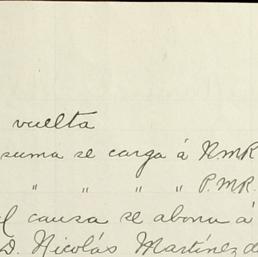 vuelta
suma se carga á NMR
" " " " P.MR.
l causa se abona á
D. Nicolás Martínez d